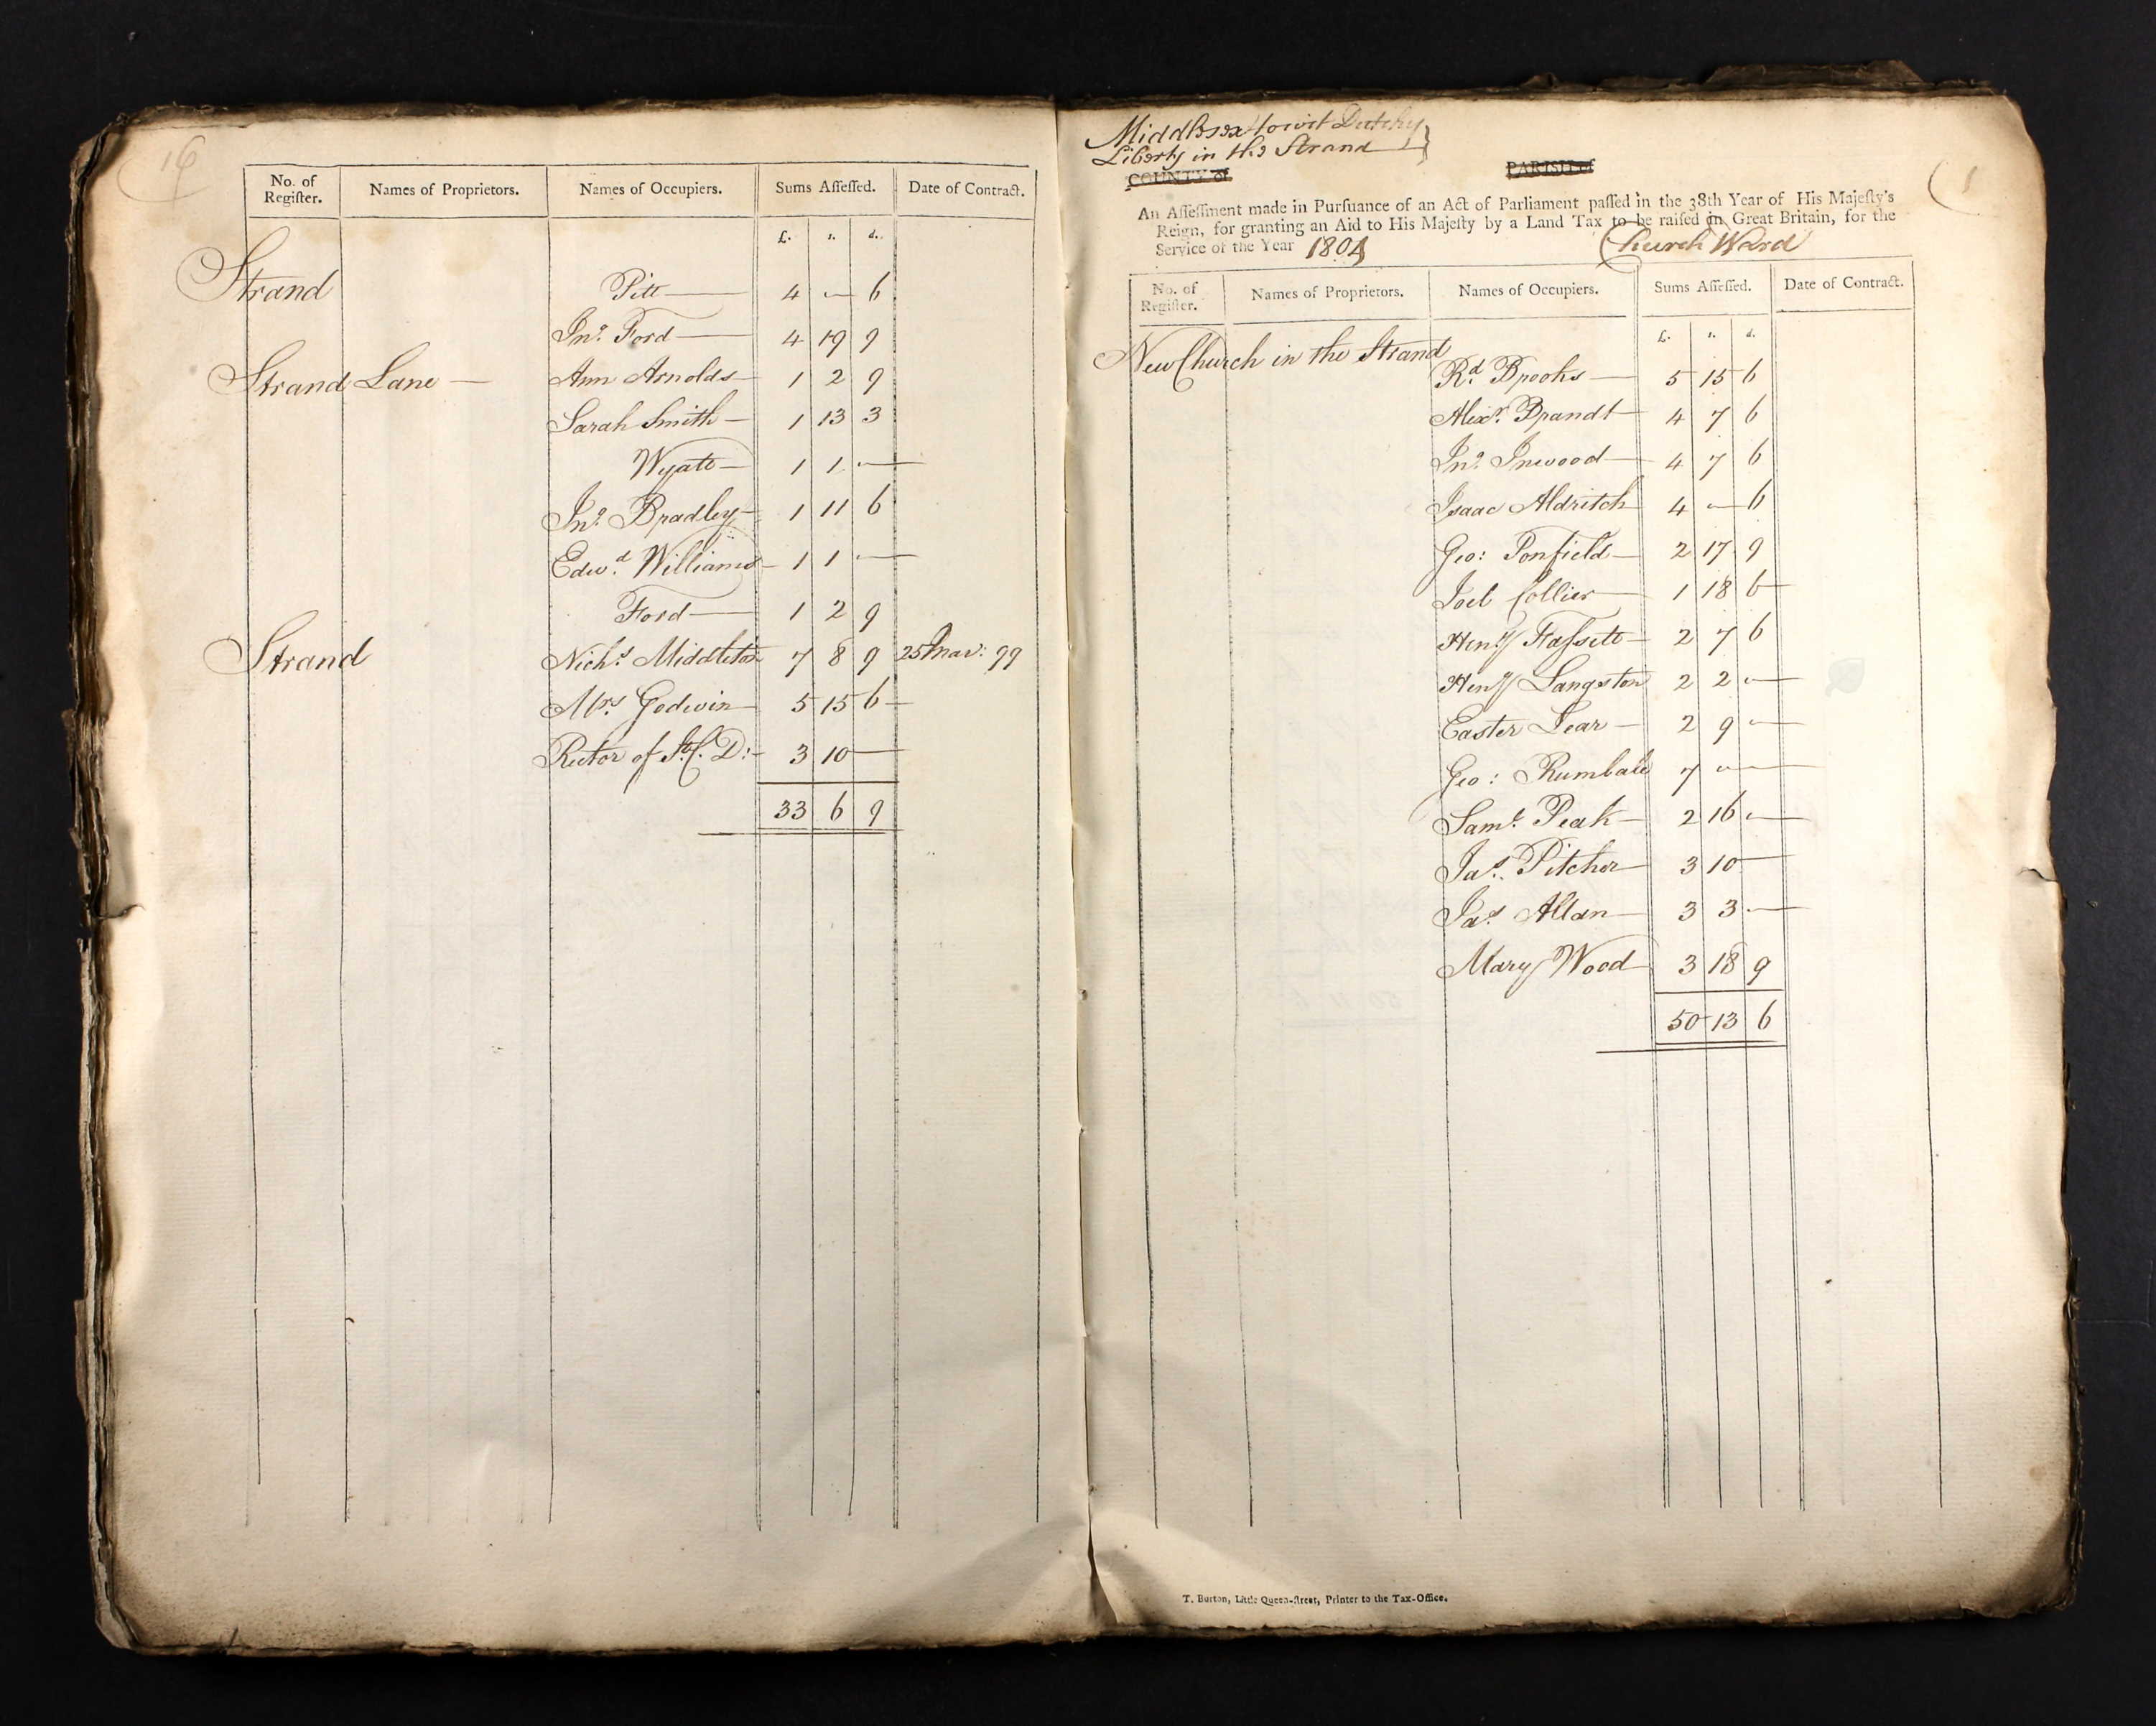 16
No. of Register. Names of Proprietors. Names of Occupiers. Sums Aſſeſſed. Date of Contract.
£. s. d.
Strand Pitt — 4 — 6
Jnº. Ford — 4 19 9
Strand Lane — Ann Arnolds — 1 2 9
Sarah Smith — 1 13 3
Wyatt — 1 1 —
Jnº. Bradley — 1 11 6
Edwd. Williams — 1 1 —
Ford — 1 2 9
Strand Nichs. Middleton 7 8 9 25 Mar: 99
Mrs. Godwin — 5 15 6
Rector of St. C. D: — 3 10 —
33 6 9
Middlesex to wit Dutchy
Liberty in the Strand
COUNTY of
PARISH of
1
An Aſſeſſment made in Purſuance of an Act of Parliament paſſed in the 38th Year of His Majeſty's
Reign, for granting an Aid to His Majeſty by a Land Tax to be raiſed in Great Britain, for the
Service of the Year 1804 Church Ward
No. of Regiſter. Names of Proprietors. Names of Occupiers. Sums Aſſeſſed. Date of Contract.
£. s. d.
New Church in the Strand
Rd. Brooks — 5 15 6
Alexr. Brandt — 4 7 6
Jnº. Inwood — 4 7 6
Isaac Aldritch 4 — 6
Geo: Ponfield — 2 17 9
Joel Collier — 1 18 6
Heny. Hassett — 2 7 6
Heny. Langston 2 2 —
Easter Lear — 2 9 —
Geo: Rumball 7 — —
Saml. Peak — 2 16 —
Jas. Pitcher — 3 10 —
Jas. Allan — 3 3 —
Mary Wood 3 18 9
50 13 6
T. Burton, Little Queen-ſtreet, Printer to the Tax-Office.